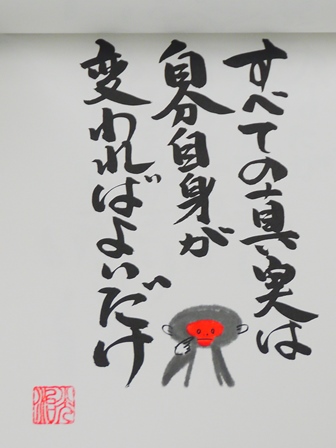 すべての真実は
自分自身が
変わればよいだけ